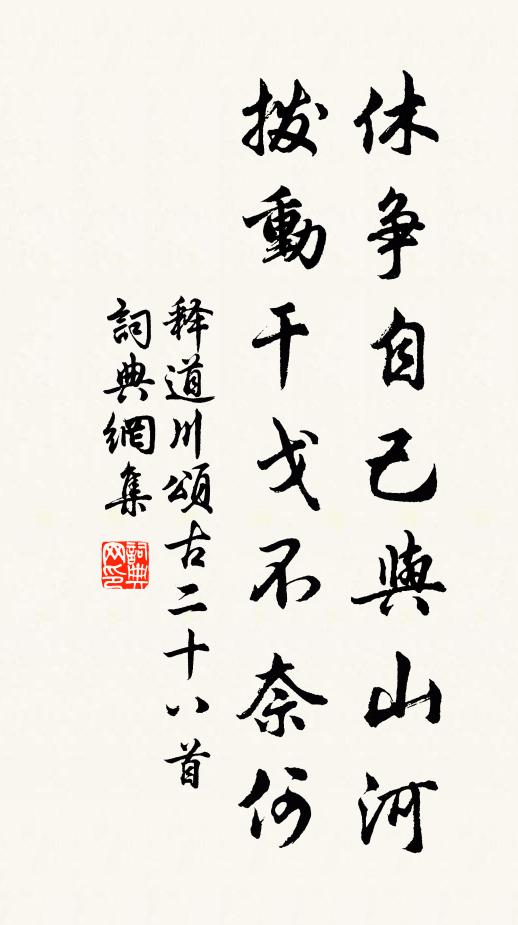 休争自己與山河
撥動干戈不奈何
释道川頌古二十八首
詞典網集
詞典网印